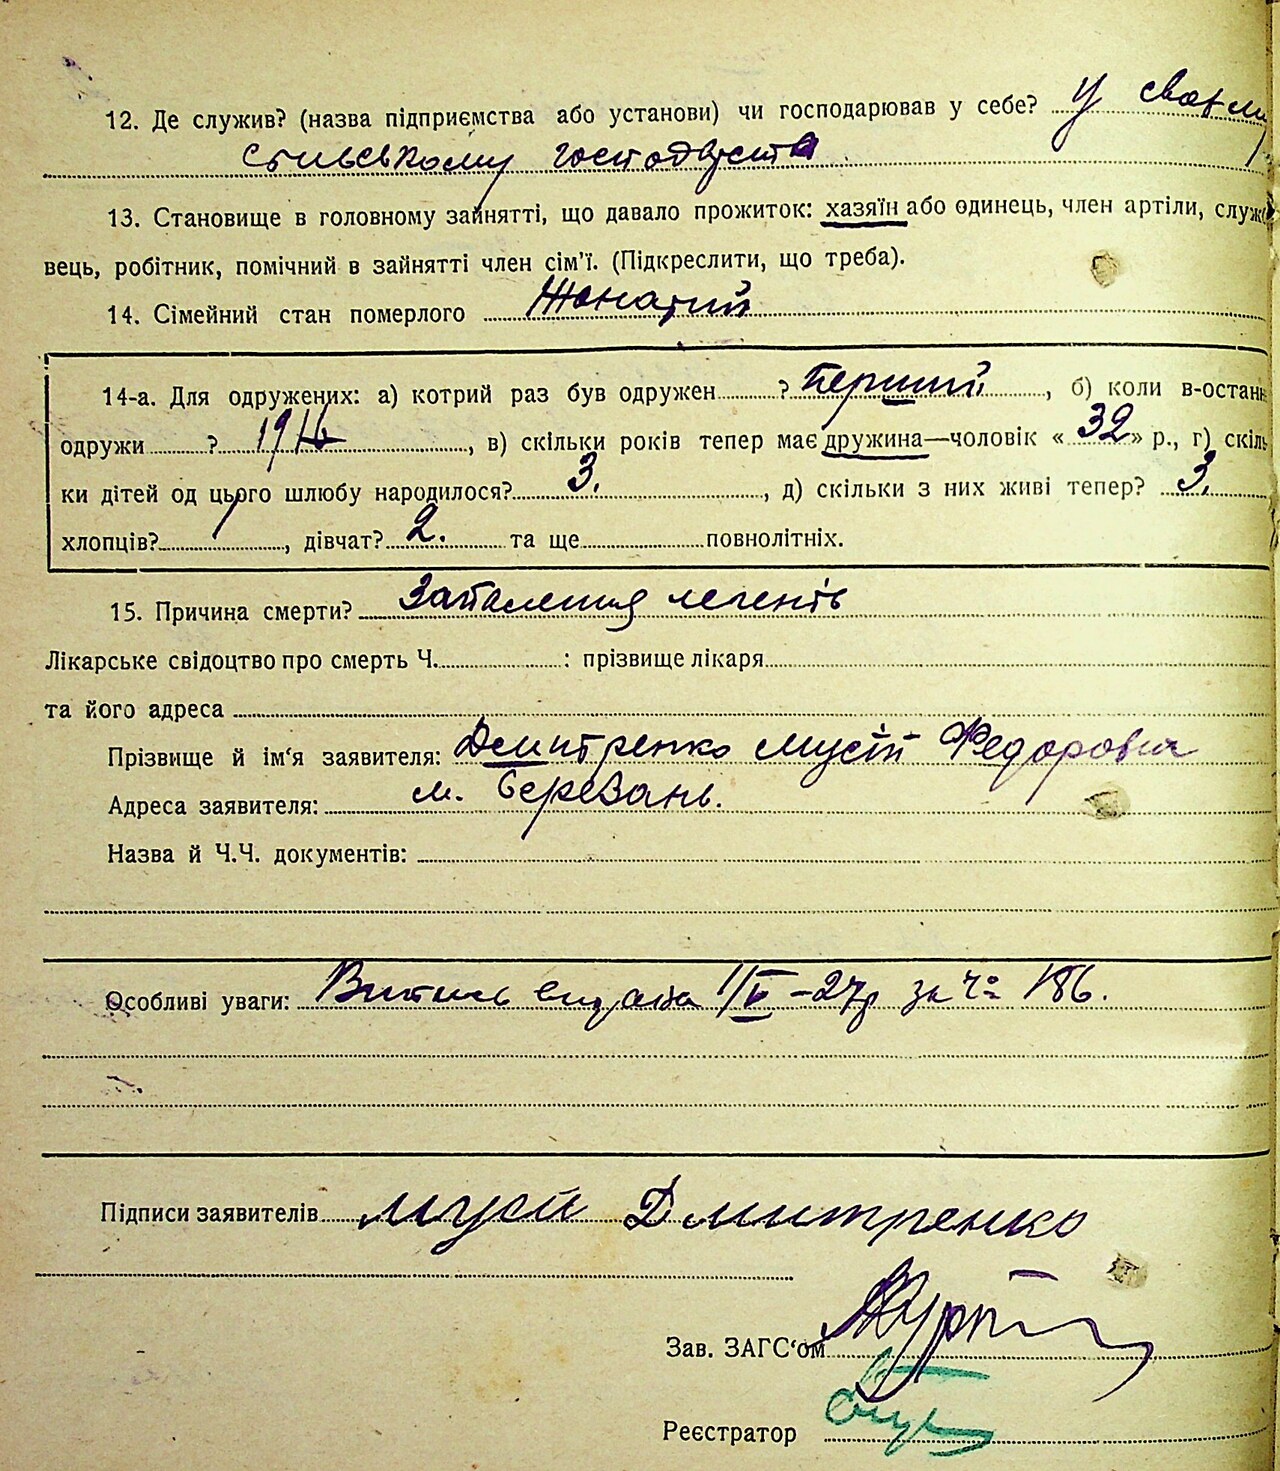 12. Де служив? (назва підприємства або установи) чи господарював у себе? у
сільському господарстві
13. Становище в головному зайнятті, що давало прожиток: хазяїн або одинець, член артіли, служ
вець, робітник, помічний в зайнятті член сім'ї. (Підкреслити, що треба).
14. Сімейний стан померлого Жонатий
14-а. Для одружених: а) котрий раз був одружен ? Перший, б) коли в-остан
одружи ? 1916, в) скільки років тепер має дружина—чоловік «32» р., г) скіль
ки дітей од цього шлюбу народилося? 3., д) скільки з них живі тепер? 3.
хлопців? 1, дівчат? 2. та ще повнолітніх.
15. Причина смерти? Запалення легенів
Лікарське свідоцтво про смерть Ч. : прізвище лікаря
та його адреса
Прізвище й ім'я заявителя: Дмитренко Мусій Федорович
Адреса заявителя: м. Березань.
Назва й Ч.Ч. документів:
Особливі уваги: Витись видана 1/V–27р за Ч० 186.
Підписи заявителів Мусій Дмитренко
Зав. ЗАГС'ом
Реєстратор